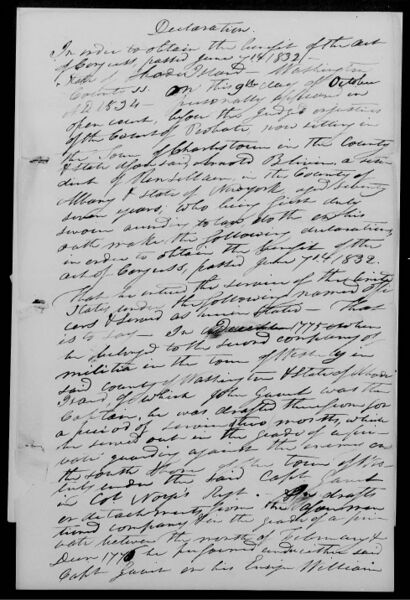 Declaration.
In order to obtain the benefit of the act
of Congress, passed June 7th 1832.
State of Rhode Island Washington
County ss. On this 9th day of October
AD 1834 personally appeared in
open court, before the Judge
of the Court of Probate, now sitting in
the Town of Charlestown in the County
& State Arnold Bliven, a resi
dent of Rensselaer, in the County of
Albany & State of New York, aged seventy
seven years, who being first duly
sworn according to law doth on his
oath make the following declaration
in order to obtain the benefit of the
act of Congress, passed June 7th 1832.
That he entered the service of the United
States under the following named offi
cers & served as herein stated - That
is to say - In 1775 when
he belonged to the second company of
militia in the town of Westerly in
said county of Washington & State of Rhode
Island, of which John Gavit was the
Captain, he was drafted therefrom for
a period of two months, which
he served out in the grade of a pri
vate guarding against the enemy on
the south shore of the town of Wes
terly under the said Capt Gavit
in Col Noyes Regt. drafts
or detachments from the aforemen
tioned company in the grade of a pri
vate between the month of February &
Decr 1776 he performed under the said
Capt Gavit his Ensign William